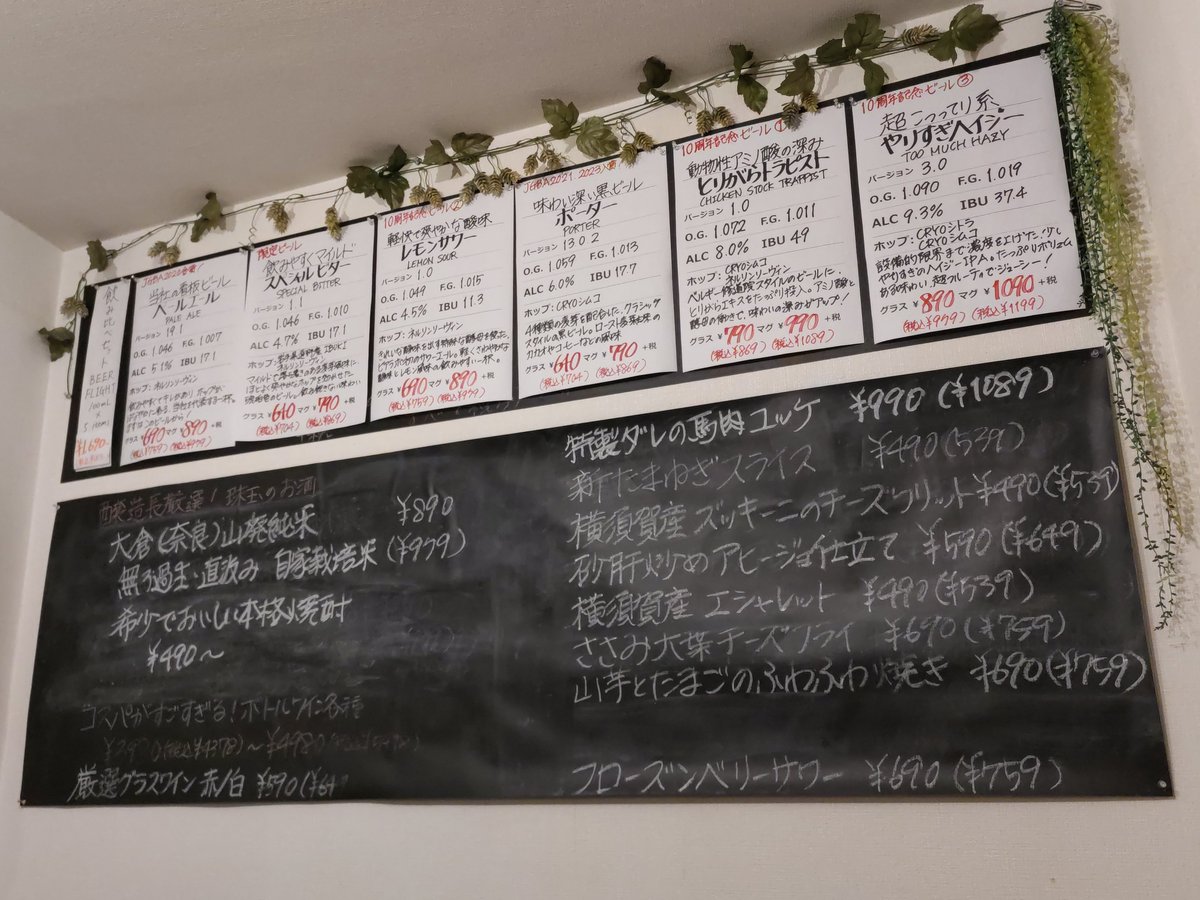 飲み比べセット
BEER
FLIGHT
100mL
¥1,690
JGBA2020金賞!
当社の看板ビール
ペールエール
PALE ALE
バージョン
19.1
O.G. 1.046 F.G. 1.007
ALC 5.1% IBU 17.1
ホップ:ネルソンソーヴィン
グラス ¥690 マグ ¥890 +税
(税込¥759) (税込¥979)
限定ビール
飲みやすくマイルド
スペシャルビター
SPECIAL BITTER
バージョン
1.1
O.G. 1.046 F.G. 1.010
ALC 4.7% IBU 17.1
グラス ¥640 マグ ¥790 +税
(税込¥704) (税込¥869)
10周年記念ビール②
軽快で爽やかな酸味
レモンサワー
LEMON SOUR
バージョン
1.0
O.G. 1.049 F.G. 1.015
ALC 4.5% IBU 11.3
ホップ:ネルソンソーヴィン
グラス ¥690 マグ ¥890 +税
(税込¥759) (税込¥979)
JGBA2021, 2023入賞!
味わい深い黒ビール
ポーター
PORTER
バージョン 13.0.2
O.G. 1.059 F.G. 1.013
ALC 6.0% IBU 17.7
ホップ:CRYOシムコ
グラス ¥640 マグ ¥790 +税
(税込¥704) (税込¥869)
10周年記念ビール①
動物性アミノ酸の深み
とりがらトラピスト
CHICKEN STOCK TRAPPIST
バージョン 1.0
O.G. 1.072 F.G. 1.011
ALC 8.0% IBU 49
ホップ:CRYOシムコ
ネルソンソーヴィン
ベルギー修道院スタイルのビールに、
とりがらエキスをたっぷり投入。アミノ酸と
グラス ¥790 マグ ¥990 +税
(税込¥869) (税込¥1089)
10周年記念ビール③
超こってり系
やりすぎヘイジー
TOO MUCH HAZY
バージョン 3.0
O.G. 1.090 F.G. 1.019
ALC 9.3% IBU 37.4
ホップ:CRYOシトラ
CRYOシムコ
設備的限界まで濃度を上げた、少し
やりすぎのヘイジーIPA。たっぷりボリューム
ある味わい、超フルーティでジューシー!
グラス ¥890 マグ ¥1090 +税
(税込¥979) (税込¥1199)
醸造長厳選!珠玉のお酒
大倉(奈良)山廃純米 ¥890
無ろ過生・直汲み 自家栽培米 (¥979)
希少でおいしい本格焼酎
¥490〜
コスパがすごすぎる!ボトルワイン各種
厳選グラスワイン 赤/白 ¥590(¥649
特製ダレの馬肉ユッケ ¥990 (¥1089)
新たまねぎスライス ¥490(539)
横須賀産 ズッキーニのチーズフリット ¥490(¥539)
砂肝炒め アヒージョ仕立て ¥590(¥649)
横須賀産 エシャレット ¥490(¥539)
ささみ大葉チーズフライ ¥690(¥759)
山芋とたまごのふわふわ焼き ¥690(¥759)
フローズンベリーサワー ¥690(¥759)